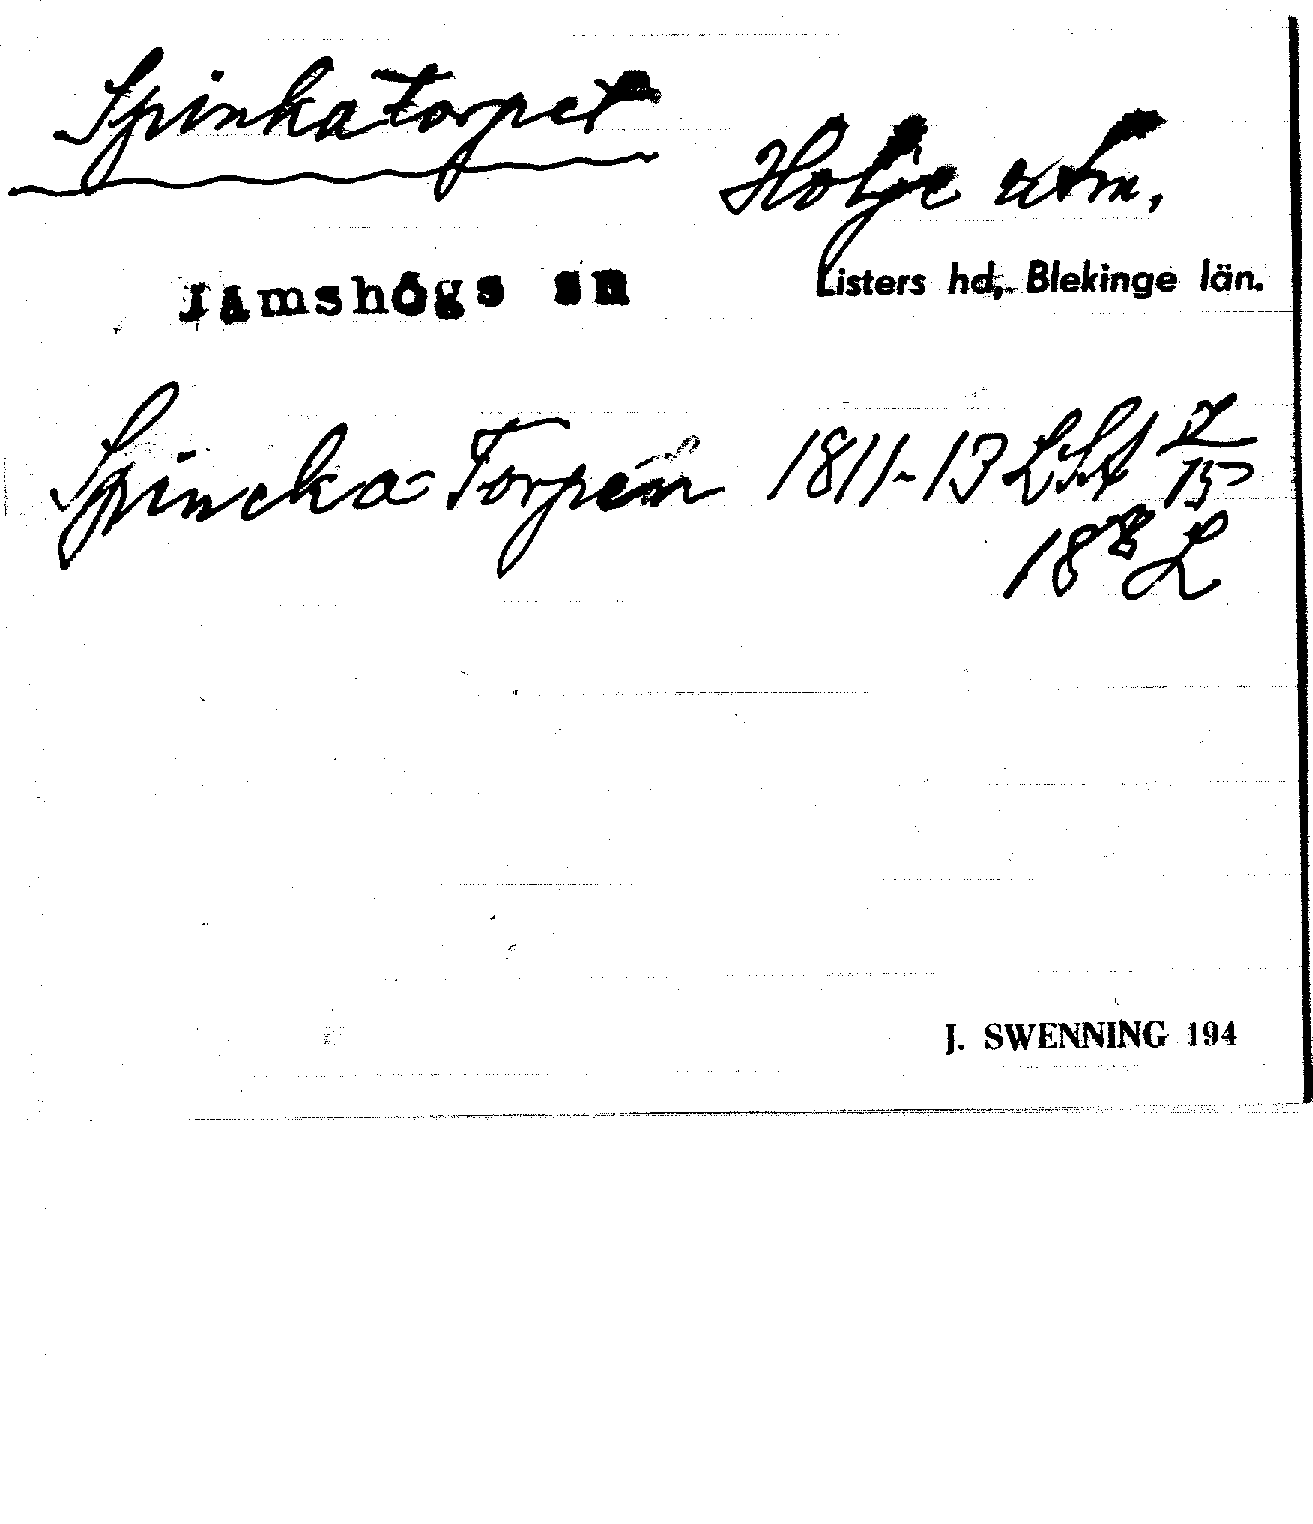 Spinkatorpet
Holje utm.
Jämshögs sn
Listers hd, Blekinge län.
Spincka Torpen 1811-13 LSA
15
18 L
J. SWENNING 194